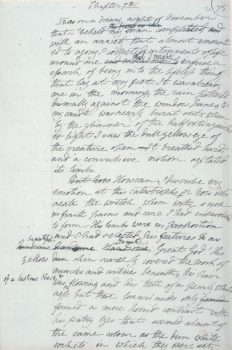 Chapter 7th
75
It was on a dreary night of November
that I beheld my man completed
with an anxiety that almost amount
ed to agony I collected instruments of life
around me that I might infuse a
spark of being into the lifeless thing
that lay at my feet. It was already
one in the morning, the rain pattered
dismally against the window panes, &
my candle was nearly burnt out, when
by the glimmer of the half extinguish
ed light I saw the dull yellow eye of
the creature open. It breathed hard,
and a convulsive motion agitated
its limbs.
But how How can I describe my
emotion at this catastrophe, or how deli
neate the wretch whom with such
infinite pains and care I had endeavoured
to form. His limbs were in proportion
and I had selected his features as
handsome Handsome. Great God! his
yellow skin scarcely covered the work of
muscles and arteries beneath; his hair
of a lustrous black
was flowing and his teeth of a pearly white
ness but these luxuriances only
formed a more horrid contrast with
his watry eyes that seemed almost of
the same colour as the dun white
sockets in which they were set,